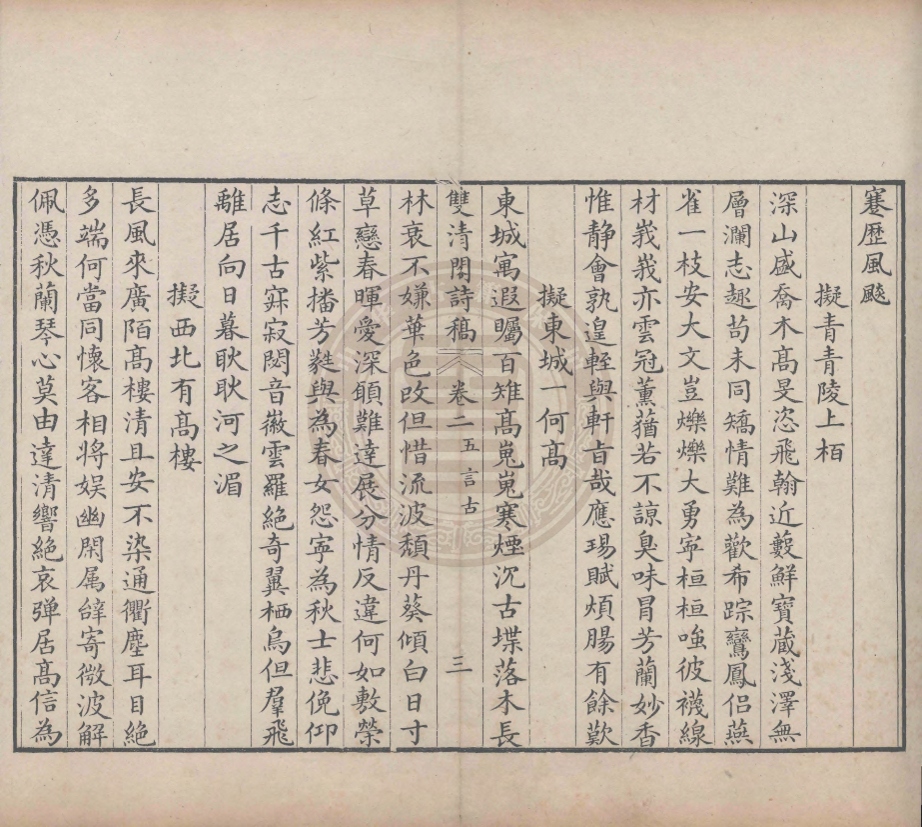 蹇歷風颷
擬青青陵上栢
深山盛喬木髙旻恣飛翰近藪鮮寶蔵淺澤無
層瀾志趣苟未同矯情難為歡希踪鸞鳳侣燕
雀一枝安大文豈爍爍大勇寜桓桓嗤彼襪線
材峩峩亦雲冠薰蕕若不諒臭味冒芳蘭妙香
惟静會孰遑輊與軒㫖哉應瑒賦煩腸有餘歎
擬東城一何髙
東城寓遐矚百雉髙嵬嵬寒煙沉古堞落木長
雙清閣詩稿 卷二 五言古 三
林衰不嫌華色改但惜流波頽丹葵傾白日寸
草戀春暉愛深願難達展分情反違何如敷榮
條紅紫播芳蕤與為春女怨寜為秋士悲俛仰
志千古寂寂閟音徽雲羅絶奇翼栖烏但羣飛
離居向日暮耿耿河之湄
擬西北有髙樓
長風來廣陌髙樓清且安不染通衢塵耳目絶
多端何當同懷客相將娱幽閑属辭寄微波解
佩憑秋蘭琴心莫由達清響絶哀弹居髙信為